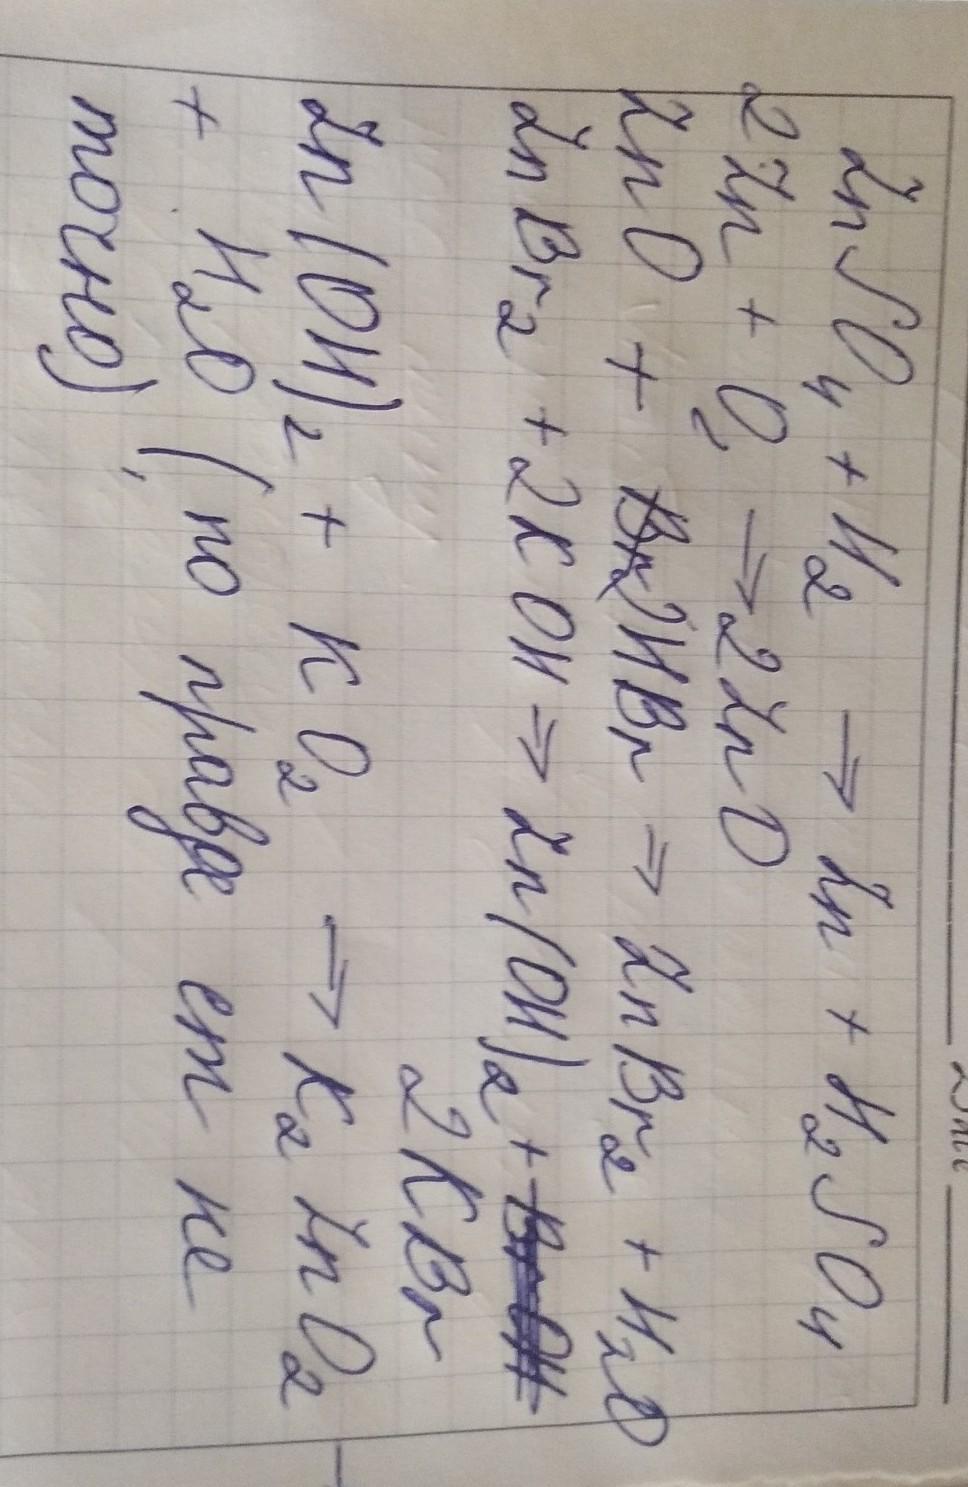 ZnSO4 + H2 → Zn + H2SO4
2Zn + O2 → 2ZnO
ZnO + 2HBr ⇒ ZnBr2 + H2O
ZnBr2 + 2KOH ⇒ Zn(OH)2 +
2KBr
Zn(OH)2 + KO2 → K2ZnO2
+ H2O (по правде ст не
точно)